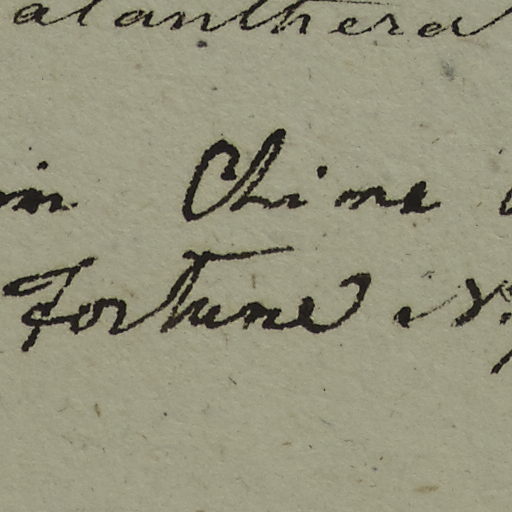 alanthera
in Chine
Fortune N.